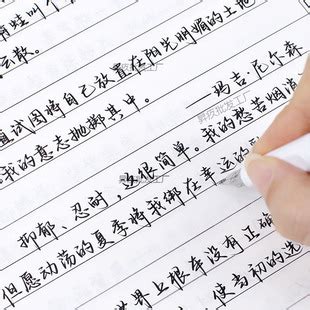 蛙叫个
云散。
试图将自己放置在阳光明媚的土地
我的意志抛掷其中。
玛吉·尼尔森
抑郁、忍耐，这很简单。我的愁苦烟消
但愿动荡的夏季将我绑在幸运的
世界上根本没有正确
使当初的选
批发工厂
批发工厂
批发工厂